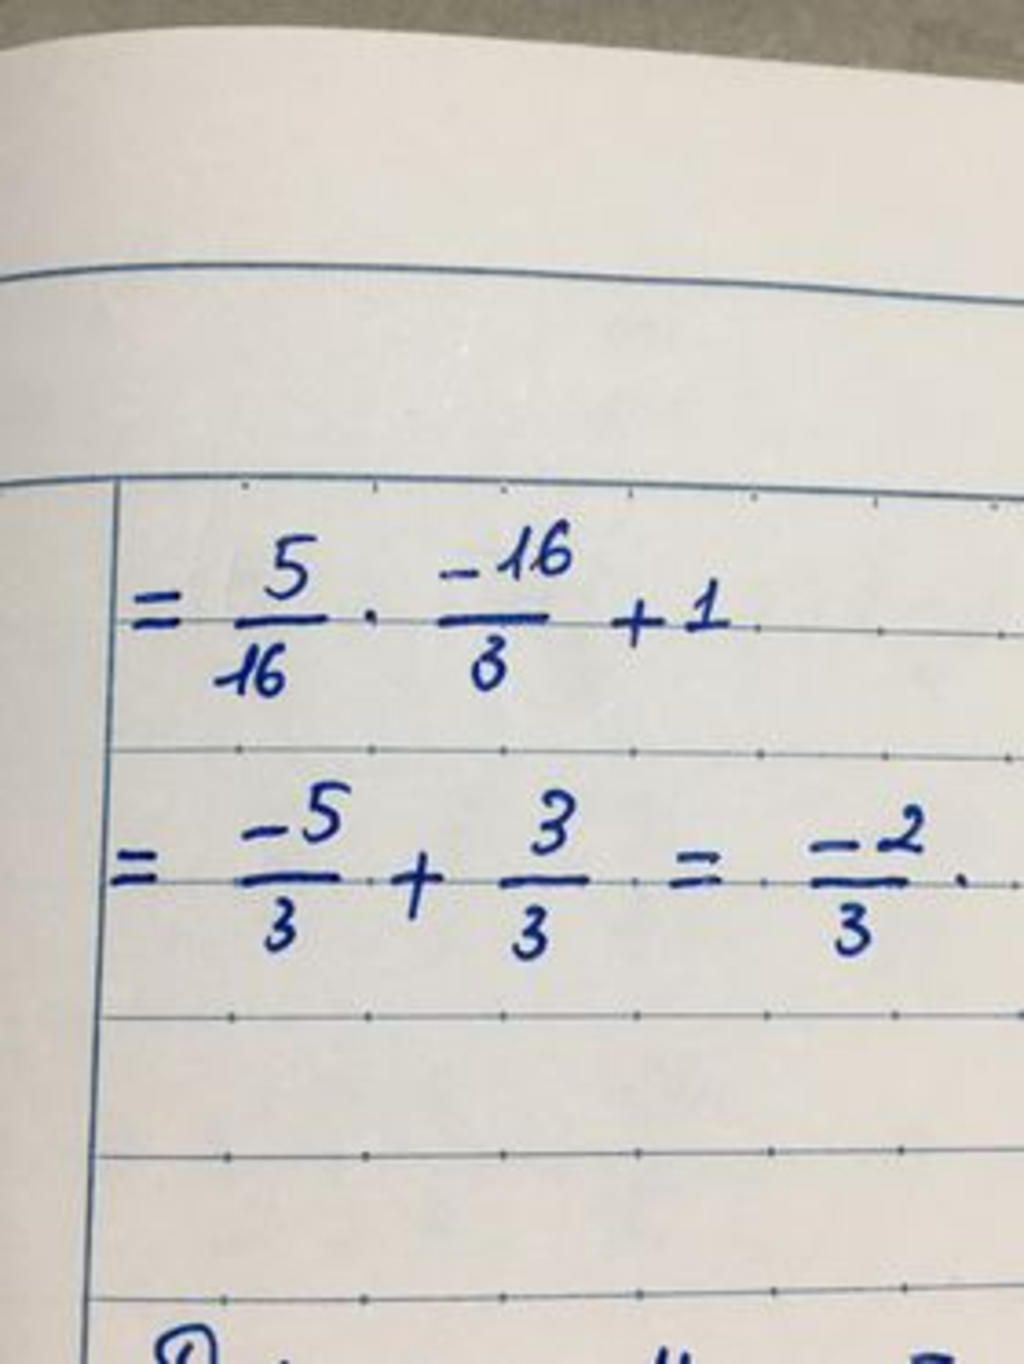 = 5/16 . -16/3 + 1
= -5/3 + 3/3 = -2/3 .